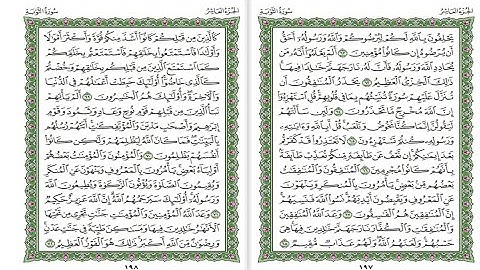 الجزء العاشر
سورة التوبة
يَحْلِفُونَ بِٱللَّهِ لَكُمْ لِيُرْضُوكُمْ وَٱللَّهُ وَرَسُولُهُۥٓ أَحَقُّ
أَن يُرْضُوهُ إِن كَانُوا۟ مُؤْمِنِينَ ٦٢ أَلَمْ يَعْلَمُوٓا۟ أَنَّهُۥ مَن
يُحَادِدِ ٱللَّهَ وَرَسُولَهُۥ فَأَنَّ لَهُۥ نَارَ جَهَنَّمَ خَٰلِدًا فِيهَا
ذَٰلِكَ ٱلْخِزْىُ ٱلْعَظِيمُ ٦٣ يَحْذَرُ ٱلْمُنَٰفِقُونَ أَن
تُنَزَّلَ عَلَيْهِمْ سُورَةٌ تُنَبِّئُهُم بِمَا فِى قُلُوبِهِمْ قُلِ ٱسْتَهْزِءُوٓا۟
إِنَّ ٱللَّهَ مُخْرِجٌ مَّا تَحْذَرُونَ ٦٤ وَلَئِن سَأَلْتَهُمْ
لَيَقُولُنَّ إِنَّمَا كُنَّا نَخُوضُ وَنَلْعَبُ قُلْ أَبِٱللَّهِ وَءَايَٰتِهِۦ
وَرَسُولِهِۦ كُنتُمْ تَسْتَهْزِءُونَ ٦٥ لَا تَعْتَذِرُوا۟ قَدْ كَفَرْتُم
بَعْدَ إِيمَٰنِكُمْ إِن نَّعْفُ عَن طَآئِفَةٍ مِّنكُمْ نُعَذِّبْ طَآئِفَةًۢ
بِأَنَّهُمْ كَانُوا۟ مُجْرِمِينَ ٦٦ ٱلْمُنَٰفِقُونَ وَٱلْمُنَٰفِقَٰتُ
بَعْضُهُم مِّنۢ بَعْضٍ يَأْمُرُونَ بِٱلْمُنكَرِ وَيَنْهَوْنَ
عَنِ ٱلْمَعْرُوفِ وَيَقْبِضُونَ أَيْدِيَهُمْ نَسُوا۟ ٱللَّهَ فَنَسِيَهُمْ
إِنَّ ٱلْمُنَٰفِقِينَ هُمُ ٱلْفَٰسِقُونَ ٦٧ وَعَدَ ٱللَّهُ ٱلْمُنَٰفِقِينَ
وَٱلْمُنَٰفِقَٰتِ وَٱلْكُفَّارَ نَارَ جَهَنَّمَ خَٰلِدِينَ فِيهَا هِىَ
حَسْبُهُمْ وَلَعَنَهُمُ ٱللَّهُ وَلَهُمْ عَذَابٌ مُّقِيمٌ ٦٨
١٩٧
الجزء العاشر
سورة التوبة
كَٱلَّذِينَ مِن قَبْلِكُمْ كَانُوٓا۟ أَشَدَّ مِنكُمْ قُوَّةً وَأَكْثَرَ أَمْوَٰلًا
وَأَوْلَٰدًا فَٱسْتَمْتَعُوا۟ بِخَلَٰقِهِمْ فَٱسْتَمْتَعْتُم بِخَلَٰقِكُمْ
كَمَا ٱسْتَمْتَعَ ٱلَّذِينَ مِن قَبْلِكُم بِخَلَٰقِهِمْ وَخُضْتُمْ
كَٱلَّذِى خَاضُوٓا۟ أُو۟لَٰٓئِكَ حَبِطَتْ أَعْمَٰلُهُمْ فِى ٱلدُّنْيَا
وَٱلْءَاخِرَةِ وَأُو۟لَٰٓئِكَ هُمُ ٱلْخَٰسِرُونَ ٦٩ أَلَمْ يَأْتِهِمْ
نَبَأُ ٱلَّذِينَ مِن قَبْلِهِمْ قَوْمِ نُوحٍ وَعَادٍ وَثَمُودَ وَقَوْمِ
إِبْرَٰهِيمَ وَأَصْحَٰبِ مَدْيَنَ وَٱلْمُؤْتَفِكَٰتِ أَتَتْهُمْ رُسُلُهُم
بِٱلْبَيِّنَٰتِ فَمَا كَانَ ٱللَّهُ لِيَظْلِمَهُمْ وَلَٰكِن كَانُوٓا۟
أَنفُسَهُمْ يَظْلِمُونَ ٧٠ وَٱلْمُؤْمِنُونَ وَٱلْمُؤْمِنَٰتُ بَعْضُهُمْ
أَوْلِيَآءُ بَعْضٍ يَأْمُرُونَ بِٱلْمَعْرُوفِ وَيَنْهَوْنَ عَنِ ٱلْمُنكَرِ
وَيُقِيمُونَ ٱلصَّلَوٰةَ وَيُؤْتُونَ ٱلزَّكَوٰةَ وَيُطِيعُونَ ٱللَّهَ
وَرَسُولَهُۥٓ أُو۟لَٰٓئِكَ سَيَرْحَمُهُمُ ٱللَّهُ إِنَّ ٱللَّهَ عَزِيزٌ حَكِيمٌ
٧١ وَعَدَ ٱللَّهُ ٱلْمُؤْمِنِينَ وَٱلْمُؤْمِنَٰتِ جَنَّٰتٍ تَجْرِى مِن تَحْتِهَا
ٱلْأَنْهَٰرُ خَٰلِدِينَ فِيهَا وَمَسَٰكِنَ طَيِّبَةً فِى جَنَّٰتِ عَدْنٍ
وَرِضْوَٰنٌ مِّنَ ٱللَّهِ أَكْبَرُ ذَٰلِكَ هُوَ ٱلْفَوْزُ ٱلْعَظِيمُ ٧٢
١٩٨